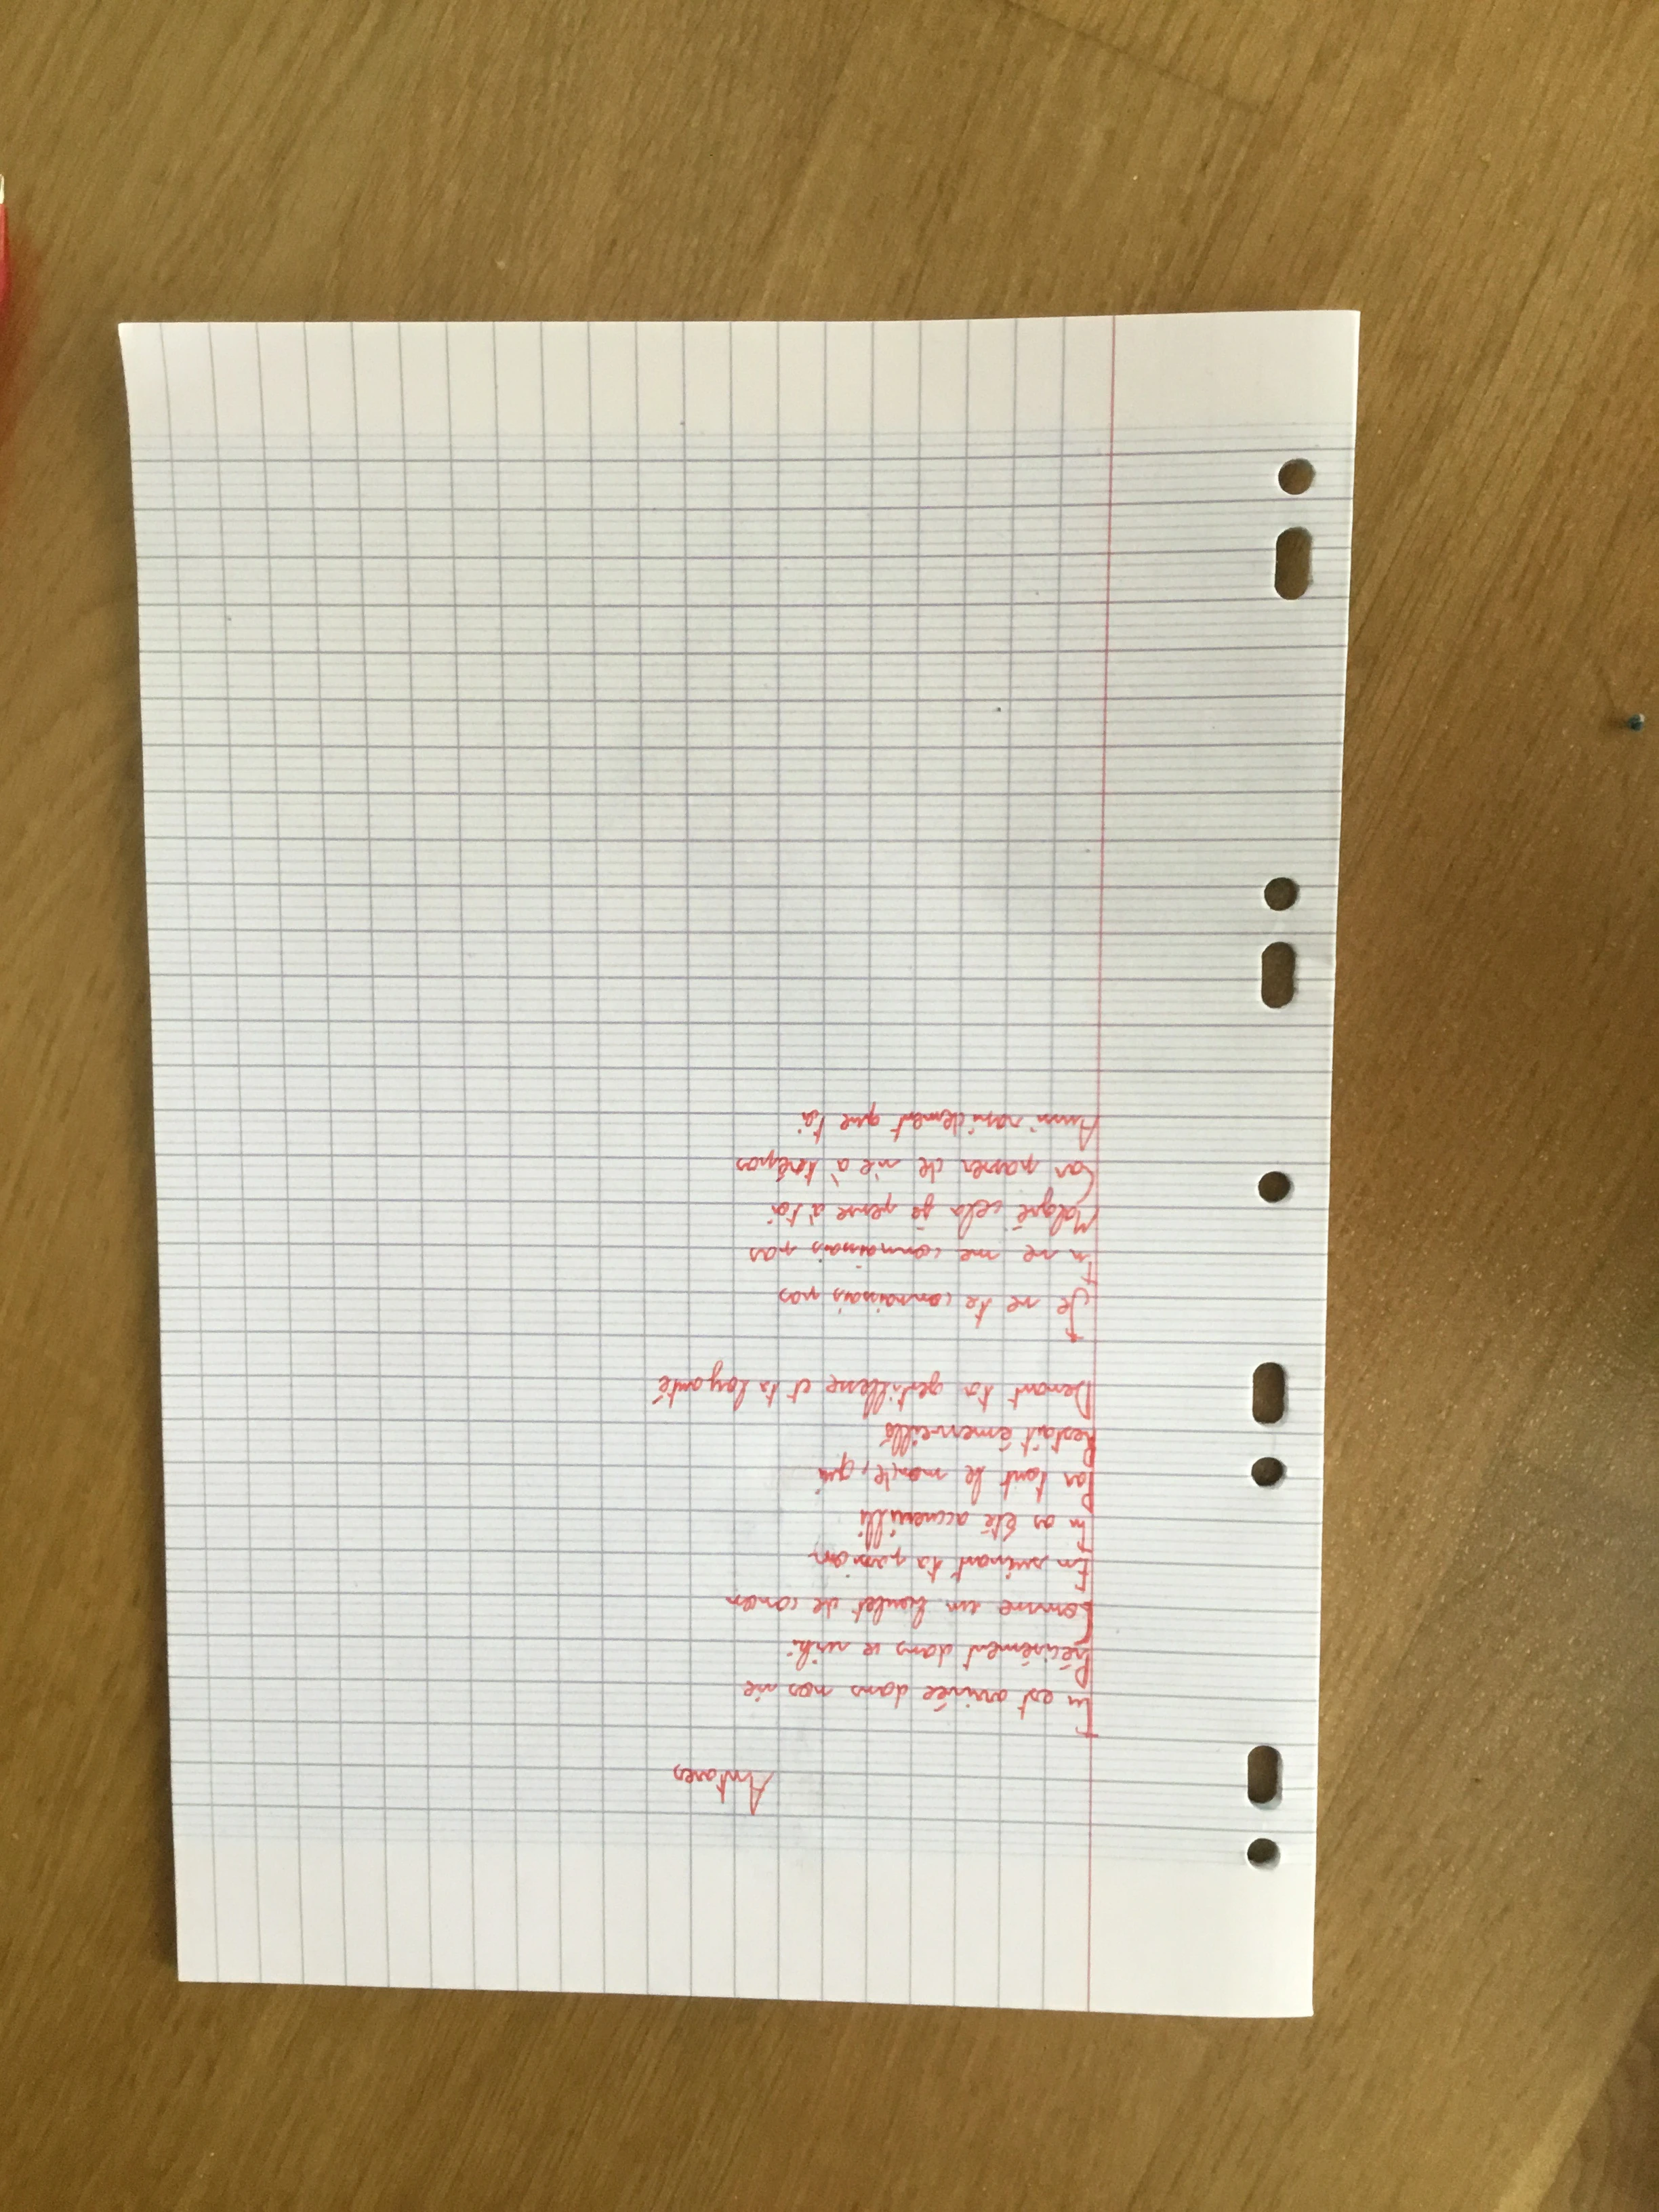 Antares
Tu est arrivée dans nos vie
Précisément dans le wiki
Comme un boulet de canon
En suivant ta passion
Tu as été accueilli
Par tout le monde, qui
Restait émerveillé
Devant ta gentillesse et ta loyauté
Je ne te connaissais pas
Tu ne me connaissais pas
Malgré cela je pense à toi
Car passer de vie à trépas
Aussi rapidement que toi